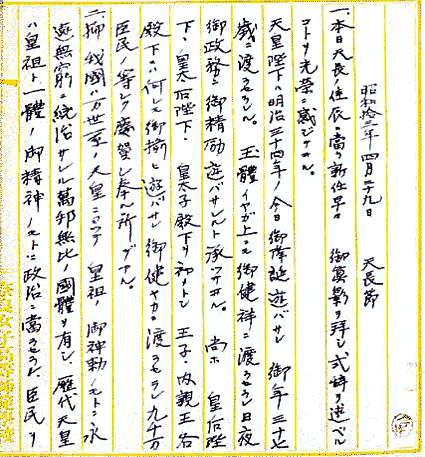 昭和拾三年四月二十九日 天長節
一、本日天長ノ佳辰ニ當リ新任早々 御真影ヲ拝シ式辞ヲ述ベル
コトヲ光栄ニ感ジマス。
天皇陛下ハ明治三十四年ノ今日御降誕遊バサレ 御年三十七
歳ニ渡ラセラレ、玉體イヤガ上ニモ御健祥ニ渡ラセラレ日夜
御政務ニ御精励遊バサレルト承リマス。尚ホ 皇后陛
下、皇太后陛下、皇太子殿下ヲ初メトシ 王子・内親王各
殿下ハ何レモ御揃ヒ遊バサレ御健ヤカニ渡ラセラレ九千万
臣民ノ等シク慶賀シ奉ル所デアル。
二、抑々我國ハ万世一系ノ天皇ニヨツテ 皇祖ノ御神勅ノモトニ永
遠無窮ニ統治サレル萬邦無比ノ國體ヲ有シ、歴代天皇
ハ皇祖ト一體ノ御精神ノモトニ政治ニ當ラセラレ、臣民ハ